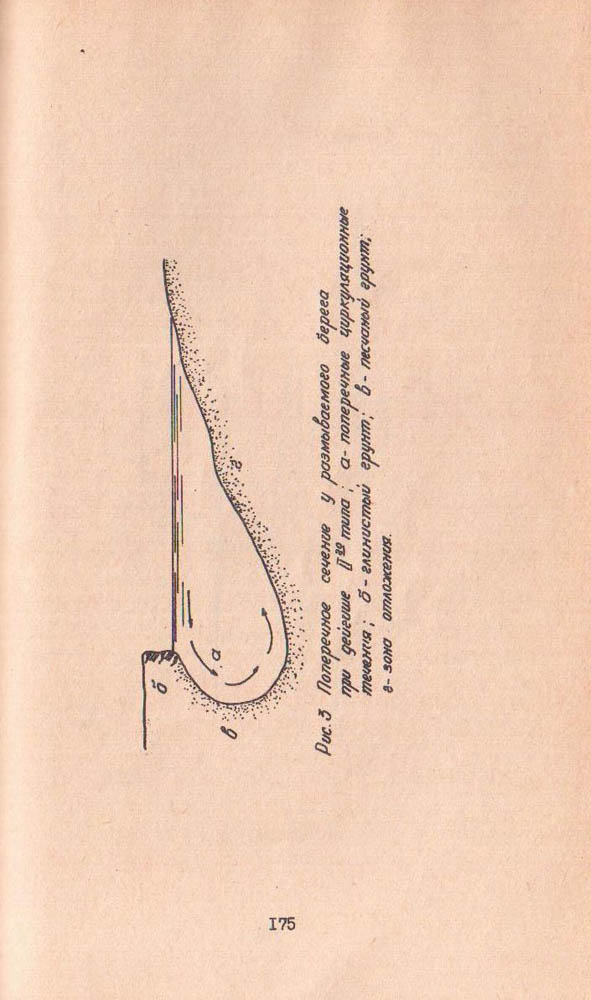 б
а
в
г
Рис. 3 Поперечное сечение у размываемого берега
при дейгише II го типа; а - поперечные циркуляционные
течения; б - глинистый грунт; в - песчаный грунт;
г - зона отложения.
I75